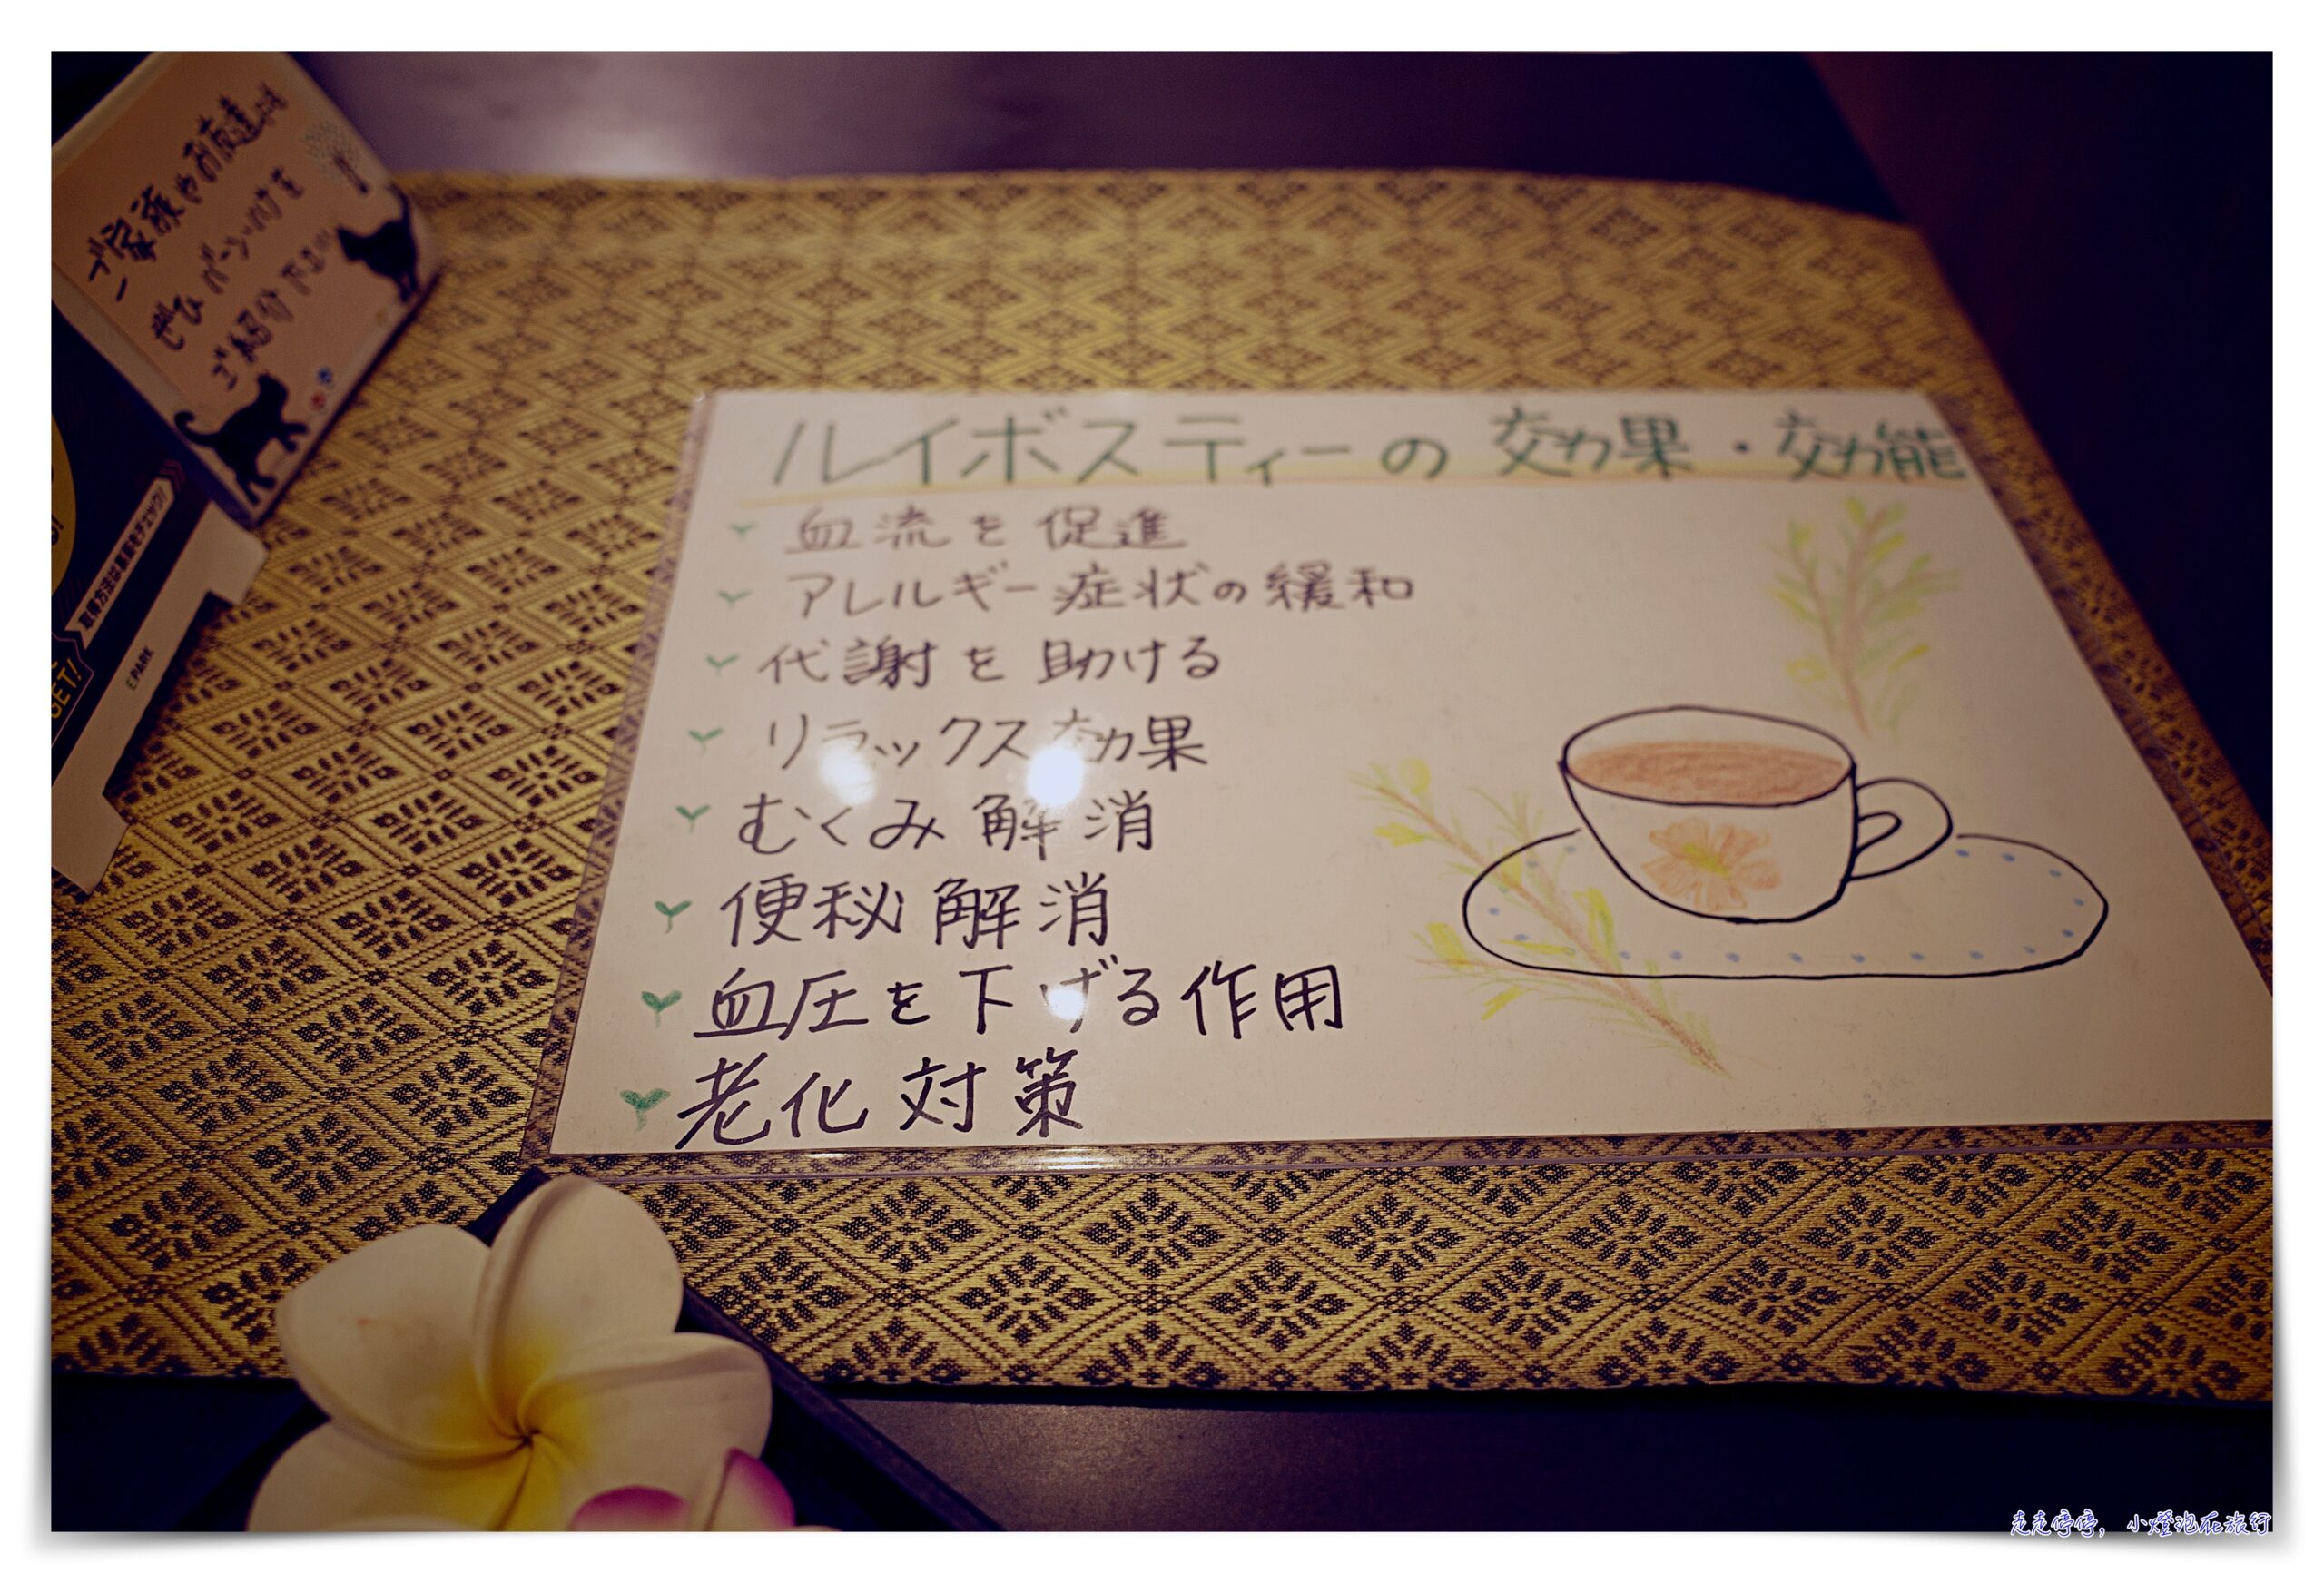 ご家族やお友達にも
ぜひ ガーシ川崎を
ご紹介下さい
取得方法は裏面をチェック!
GET!
EPARK
ルイボスティーの 効果・効能
血流を促進
アレルギー症状の緩和
代謝を助ける
リラックス効果
むくみ解消
便秘解消
血圧を下げる作用
老化対策
走走停停，小燈泡在旅行